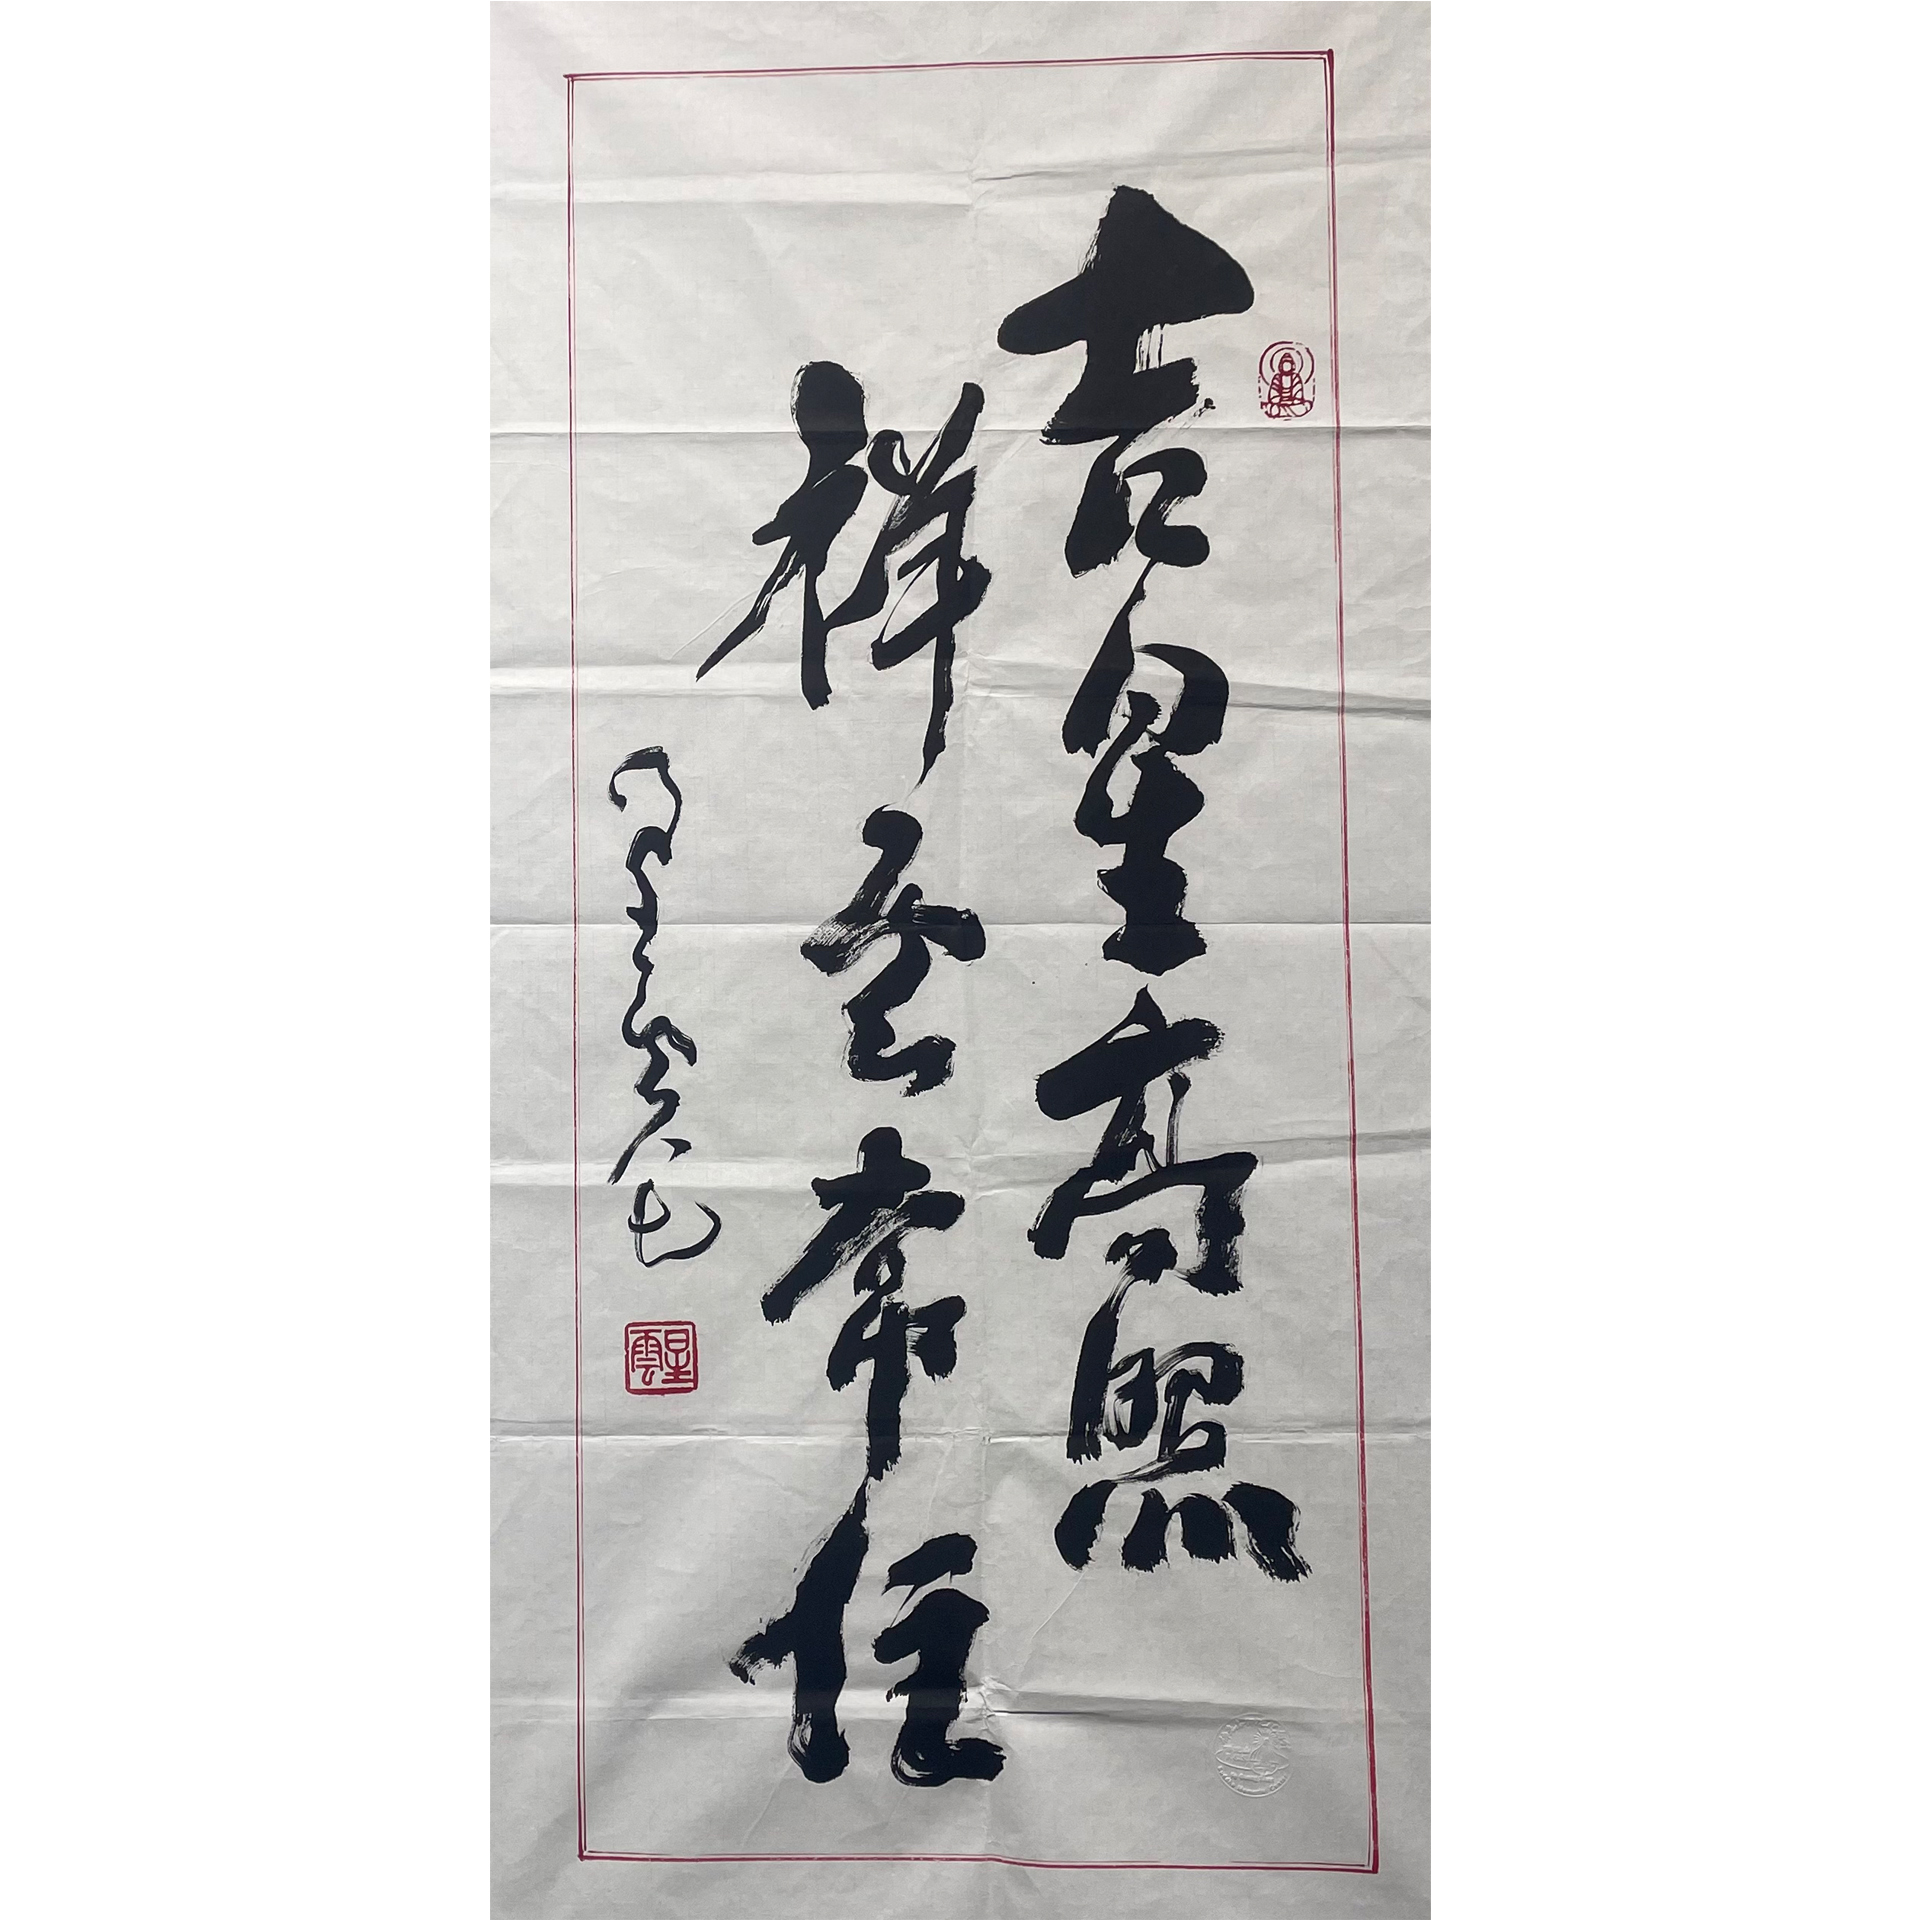 吉星高照
祥雲常住
星雲
星雲